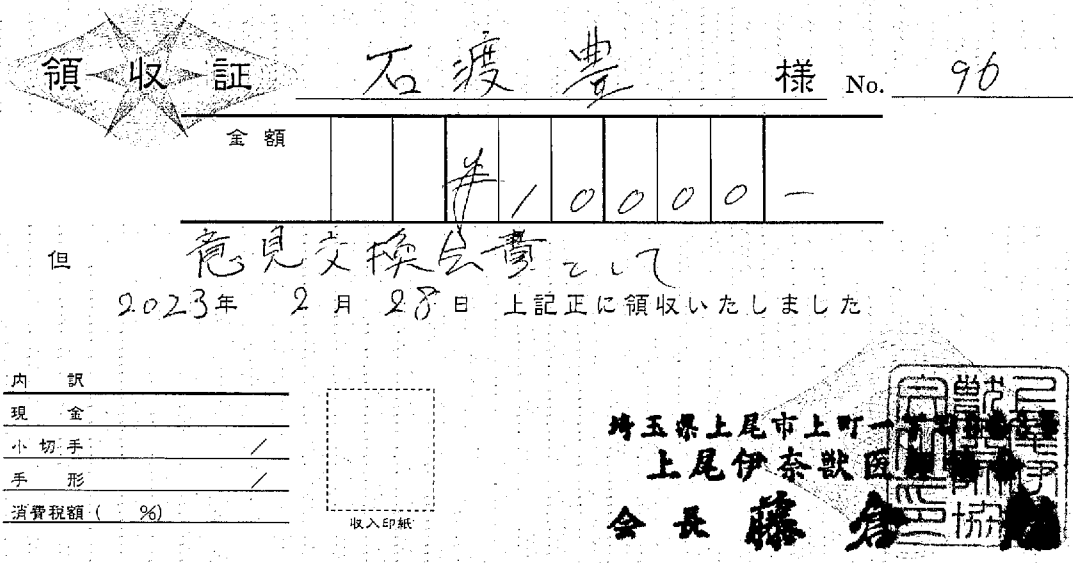 領収証 石渡豊 様 No. 96
金額 ¥10000-
但 意見交換会費として
2023年 2月 28日 上記正に領収いたしました
内訳
現金
小切手 /
手形 /
消費税額( %)
収入印紙
埼玉県上尾市上町一丁目
上尾伊奈獣医師会
会長 藤倉